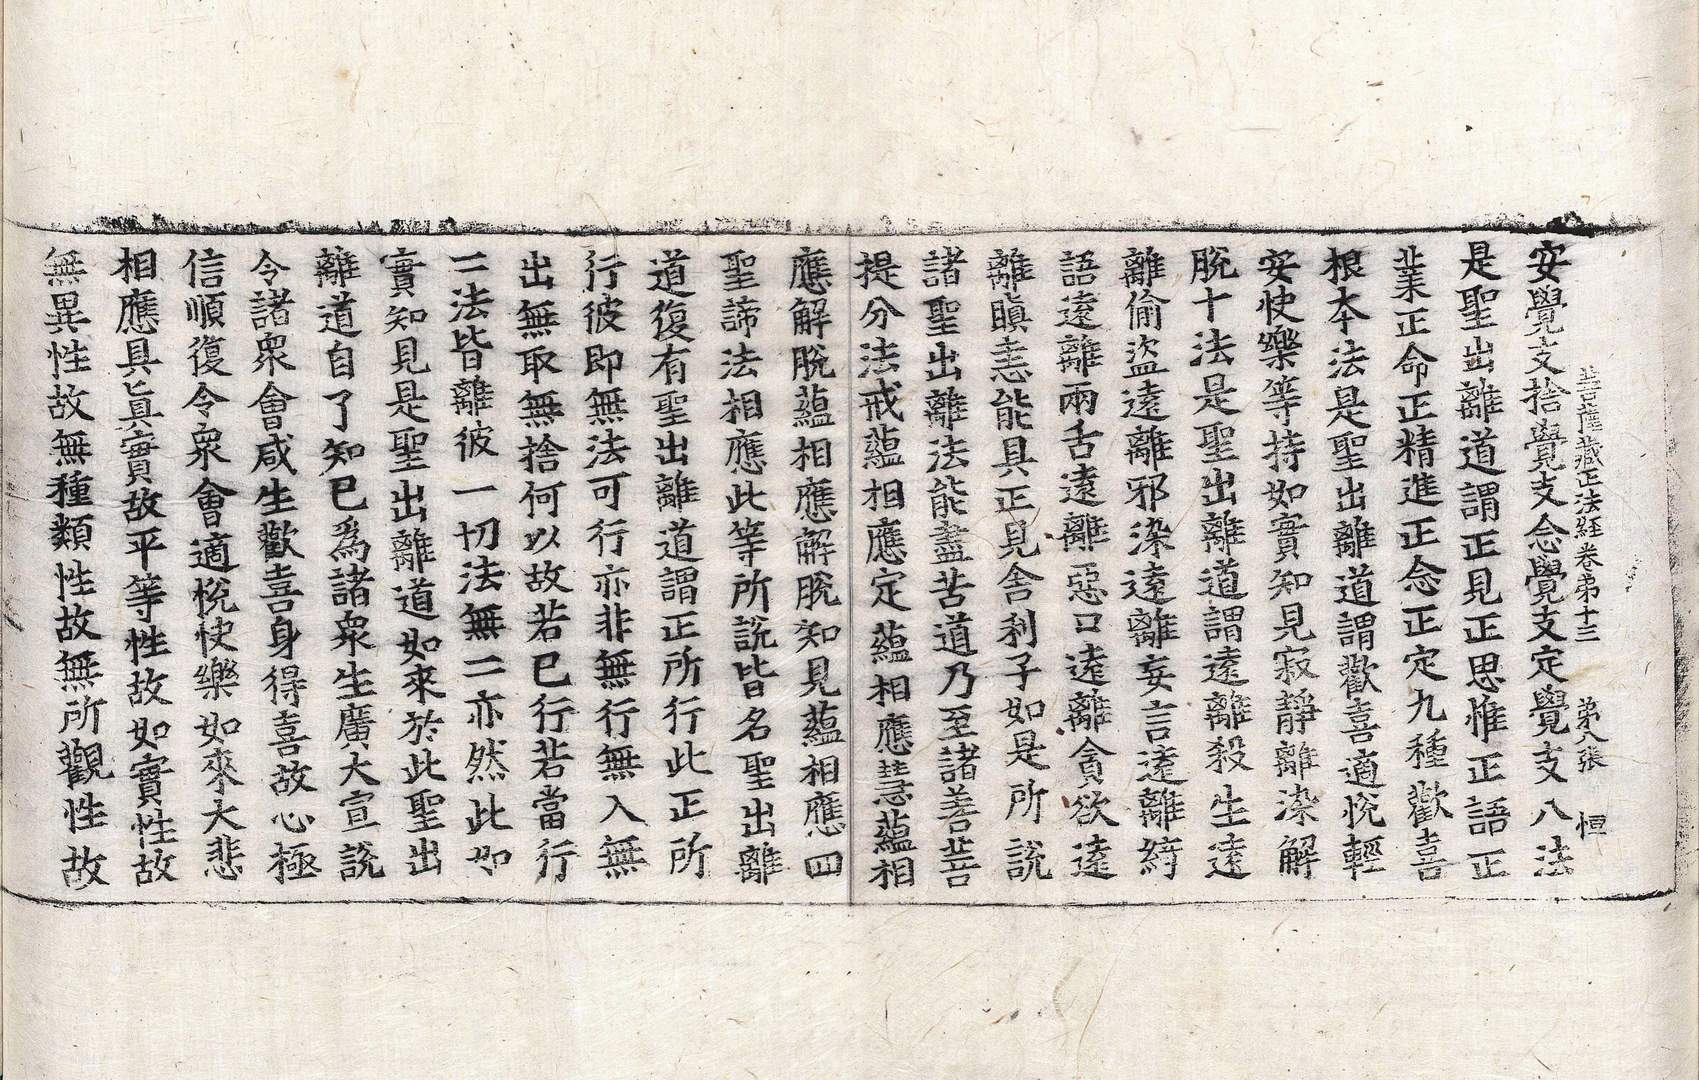 菩薩藏正法経卷苐十三　苐八張　恒
安覺支捨覺支念覺支定覺支八法
是聖出離道謂正見正思惟正語正
業正命正精進正念正定九種歡喜
根本法是聖出離道謂歡喜適悅輕
安快樂等持如實知見寂靜離染解
脫十法是聖出離道謂遠離殺生遠
離偷盜遠離邪染遠離妄言遠離綺
語遠離兩舌遠離惡口遠離貪欲遠
離瞋恚能具正見舍利子如是所說
諸聖出離法能盡苦道乃至諸善菩
提分法戒蘊相應定蘊相應慧蘊相
應解脫蘊相應解脫知見蘊相應四
聖諦法相應此等所說皆名聖出離
道復有聖出離道謂正所行此正所
行彼即無法可行亦非無行無入無
出無取無捨何以故若已行若當行
二法皆離彼一切法無二亦然此如
實知見是聖出離道如來於此聖出
離道自了知已爲諸衆生廣大宣說
令諸衆會咸生歡喜身得喜故心極
信順復令衆會適悅快樂如來大悲
相應具眞實故平等性故如實性故
無異性故無種類性故無所觀性故